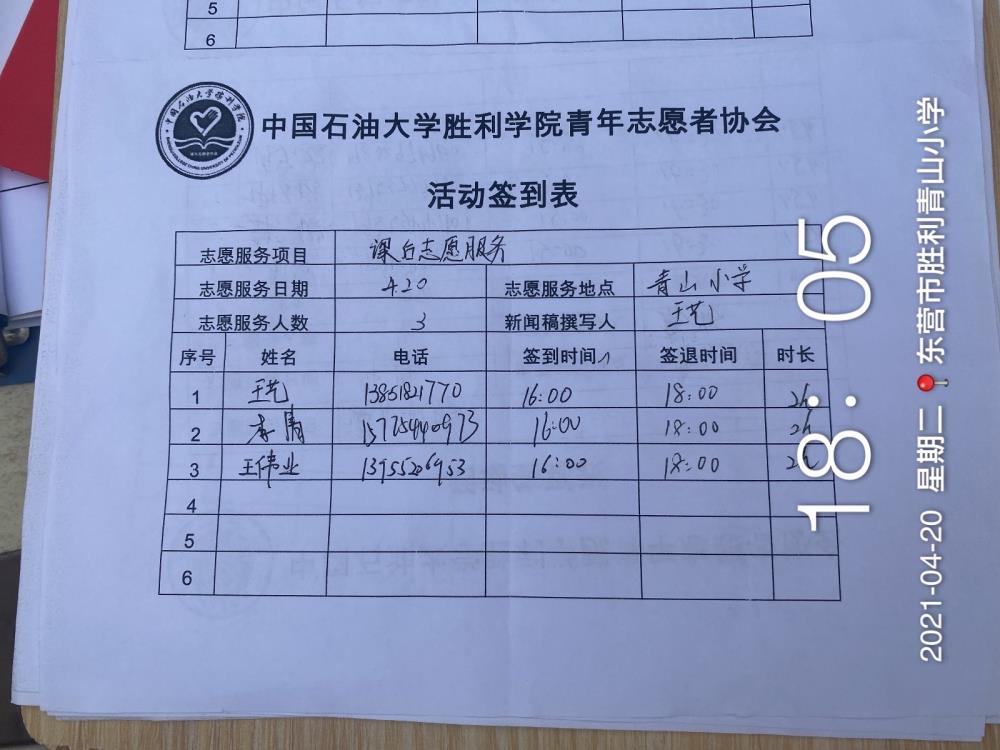 5
6
中国石油大学胜利学院青年志愿者协会
活动签到表
志愿服务项目 课后志愿服务
志愿服务日期 420 志愿服务地点 青山小学
志愿服务人数 3 新闻稿撰写人 王艺
序号 姓名 电话 签到时间 签退时间 时长
1 王艺 13851821770 16:00 18:00 2h
2 李清 15725440973 16:00 18:00 2h
3 王伟业 1395526953 16:00 18:00 2h
4
5
6
18:05
2021-04-20 星期二 东营市胜利青山小学